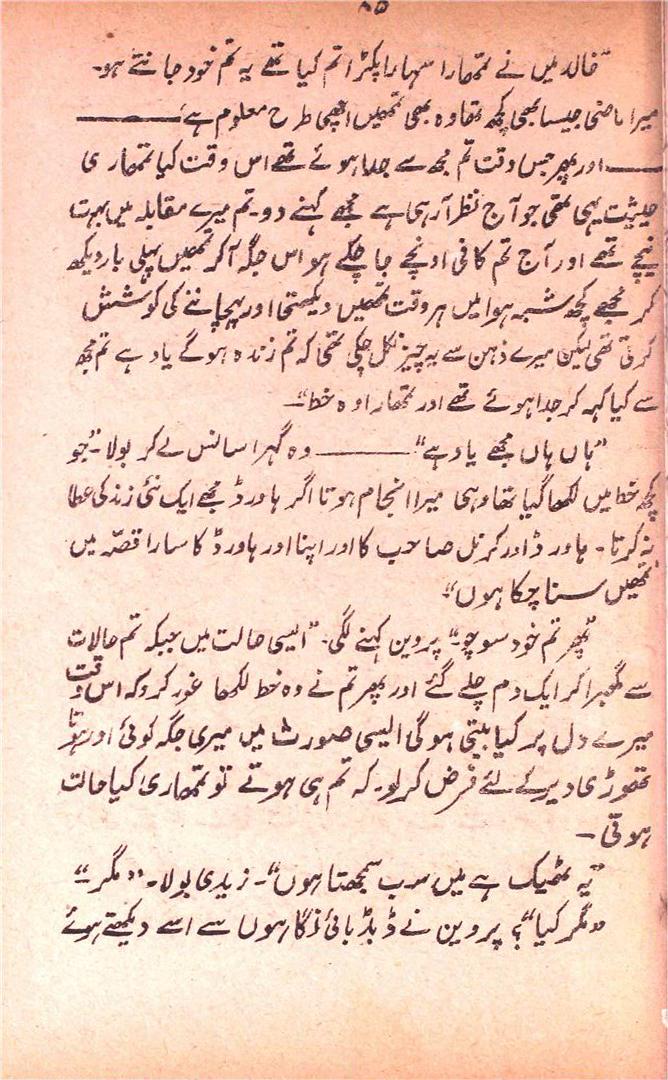 ۸۵
"خالد میں نے تمھارا سہارا پکڑا تم کیا تھے یہ تم خود جانتے ہو۔
میرا ماضی جیسا بھی کچھ تھا وہ بھی تمھیں اچھی طرح معلوم ہے ـــــــ
ـــــــ اور پھر جس وقت تم مجھ سے جدا ہوئے تھے اس وقت کیا تمھاری
حیثیت یہی تھی جو آج نظر آ رہی ہے مجھے کہنے دو۔ تم میرے مقابلہ میں بہت
نیچے تھے اور آج تم کافی اونچے جا چکے ہو اس جگہ آ کر تمھیں پہلی بار دیکھ
کر مجھے کچھ شبہ ہوا میں ہر وقت تمھیں دیکھتی اور پہچاننے کی کوشش
کرتی تھی لیکن میرے ذہن سے یہ چیز نکل چکی تھی کہ تم زندہ ہو گے یاد ہے تم مجھ
سے کیا کہہ کر جدا ہوئے تھے اور تمھارا وہ خط"۔
"ہاں ہاں مجھے یاد ہے" ـــــــ وہ گہرا سانس لے کر بولا۔ "جو
کچھ خط میں لکھا گیا تھا وہی میرا انجام ہوتا اگر ہاورڈ مجھے ایک نئی زندگی عطا
نہ کرتا۔ ہاورڈ اور کرنل صاحب کا اور اپنا اور ہاورڈ کا سارا قصّہ میں
تمھیں سنا چکا ہوں"۔
"پھر تم خود سوچو۔" پروین کہنے لگی۔ "ایسی حالت میں جبکہ تم حالات
سے گھبرا کر ایک دم چلے گئے اور پھر تم نے وہ خط لکھا غور کرو کہ اس وقت
میرے دل پر کیا بیتی ہو گی ایسی صورت میں میری جگہ کوئی اور ہوتا
تھوڑی دیر کے لئے فرض کر لو۔ کہ تم ہی ہوتے تو تمھاری کیا حالت
ہوتی۔
"یہ ٹھیک ہے میں سب سمجھتا ہوں"۔ زیدی بولا۔ "مگر۔"
"مگر کیا"؟ پروین نے ڈبڈبائی نگاہوں سے اسے دیکھتے ہوئے